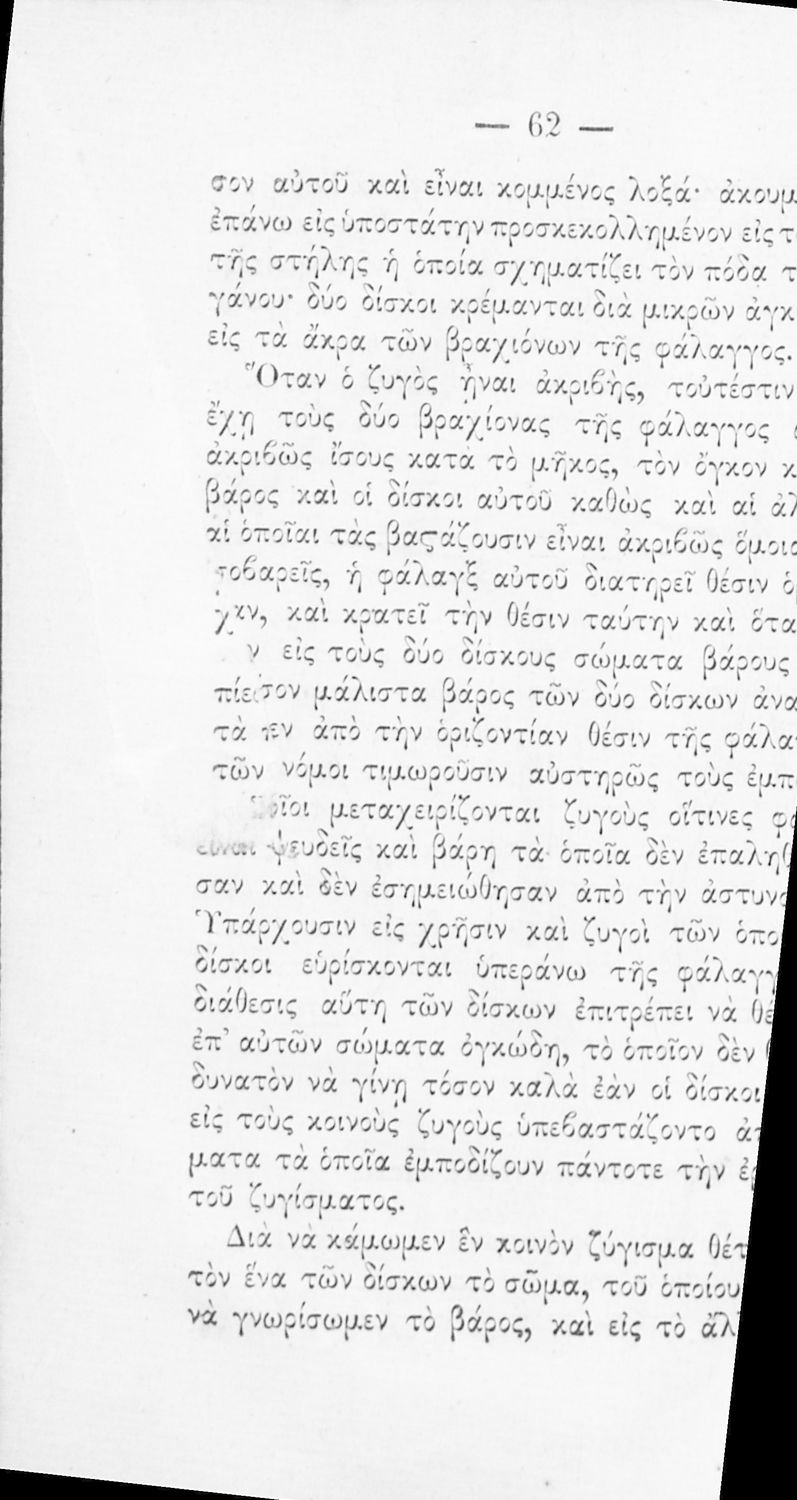 — 62 —
σον αὐτοῦ καὶ εἶναι κομμένος λοξά· ἀκουμ
ἐπάνω εἰς ὑποστάτην προσκεκολλημένον εἰς τ
τῆς στήλης ἡ ὁποία σχηματίζει τὸν πόδα τ
γάνου· δύο δίσκοι κρέμανται διὰ μικρῶν ἀγκ
εἰς τὰ ἄκρα τῶν βραχιόνων τῆς φάλαγγος.
Ὅταν ὁ ζυγὸς ᾖναι ἀκριβὴς, τοὐτέστιν
ἔχῃ τοὺς δύο βραχίονας τῆς φάλαγγος
ἀκριβῶς ἴσους κατὰ τὸ μῆκος, τὸν ὄγκον κ
βάρος καὶ οἱ δίσκοι αὐτοῦ καθὼς καὶ αἱ ἀλ
αἱ ὁποῖαι τὰς βαστάζουσιν εἶναι ἀκριβῶς ὅμοιο
σοβαρεῖς, ἡ φάλαγξ αὐτοῦ διατηρεῖ θέσιν ὁρ
χαν, καὶ κρατεῖ τὴν θέσιν ταύτην καὶ ὅτα
ν εἰς τοὺς δύο δίσκους σώματα βάρους
μάλιστα βάρος τῶν δύο δίσκων ἀνα
τὰ ἀπὸ τὴν ὁριζοντίαν θέσιν τῆς φάλαγ
τῶν νόμοι τιμωροῦσιν αὐστηρῶς τοὺς ἐμπ
μεταχειρίζονται ζυγοὺς οἵτινες φα
εἶναι ψευδεῖς καὶ βάρη τὰ ὁποῖα δὲν ἐπαληθ
σαν καὶ δὲν ἐσημειώθησαν ἀπὸ τὴν ἀστυνο
Ὑπάρχουσιν εἰς χρῆσιν καὶ ζυγοὶ τῶν ὁπο
δίσκοι εὑρίσκονται ὑπεράνω τῆς φάλαγγ
διάθεσις αὕτη τῶν δίσκων ἐπιτρέπει νὰ θέ
ἐπ’ αὐτῶν σώματα ὀγκώδη, τὸ ὁποῖον δὲν
δυνατὸν νὰ γίνῃ τόσον καλὰ ἐὰν οἱ δίσκοι
εἰς τοὺς κοινοὺς ζυγοὺς ὑπεβαστάζοντο ἀπ
ματα τὰ ὁποῖα ἐμποδίζουν πάντοτε τὴν ἐρ
τοῦ ζυγίσματος.
Διὰ νὰ κάμωμεν ἓν κοινὸν ζύγισμα θέτ
τὸν ἕνα τῶν δίσκων τὸ σῶμα, τοῦ ὁποίου
νὰ γνωρίσωμεν τὸ βάρος, καὶ εἰς τὸ ἀλ